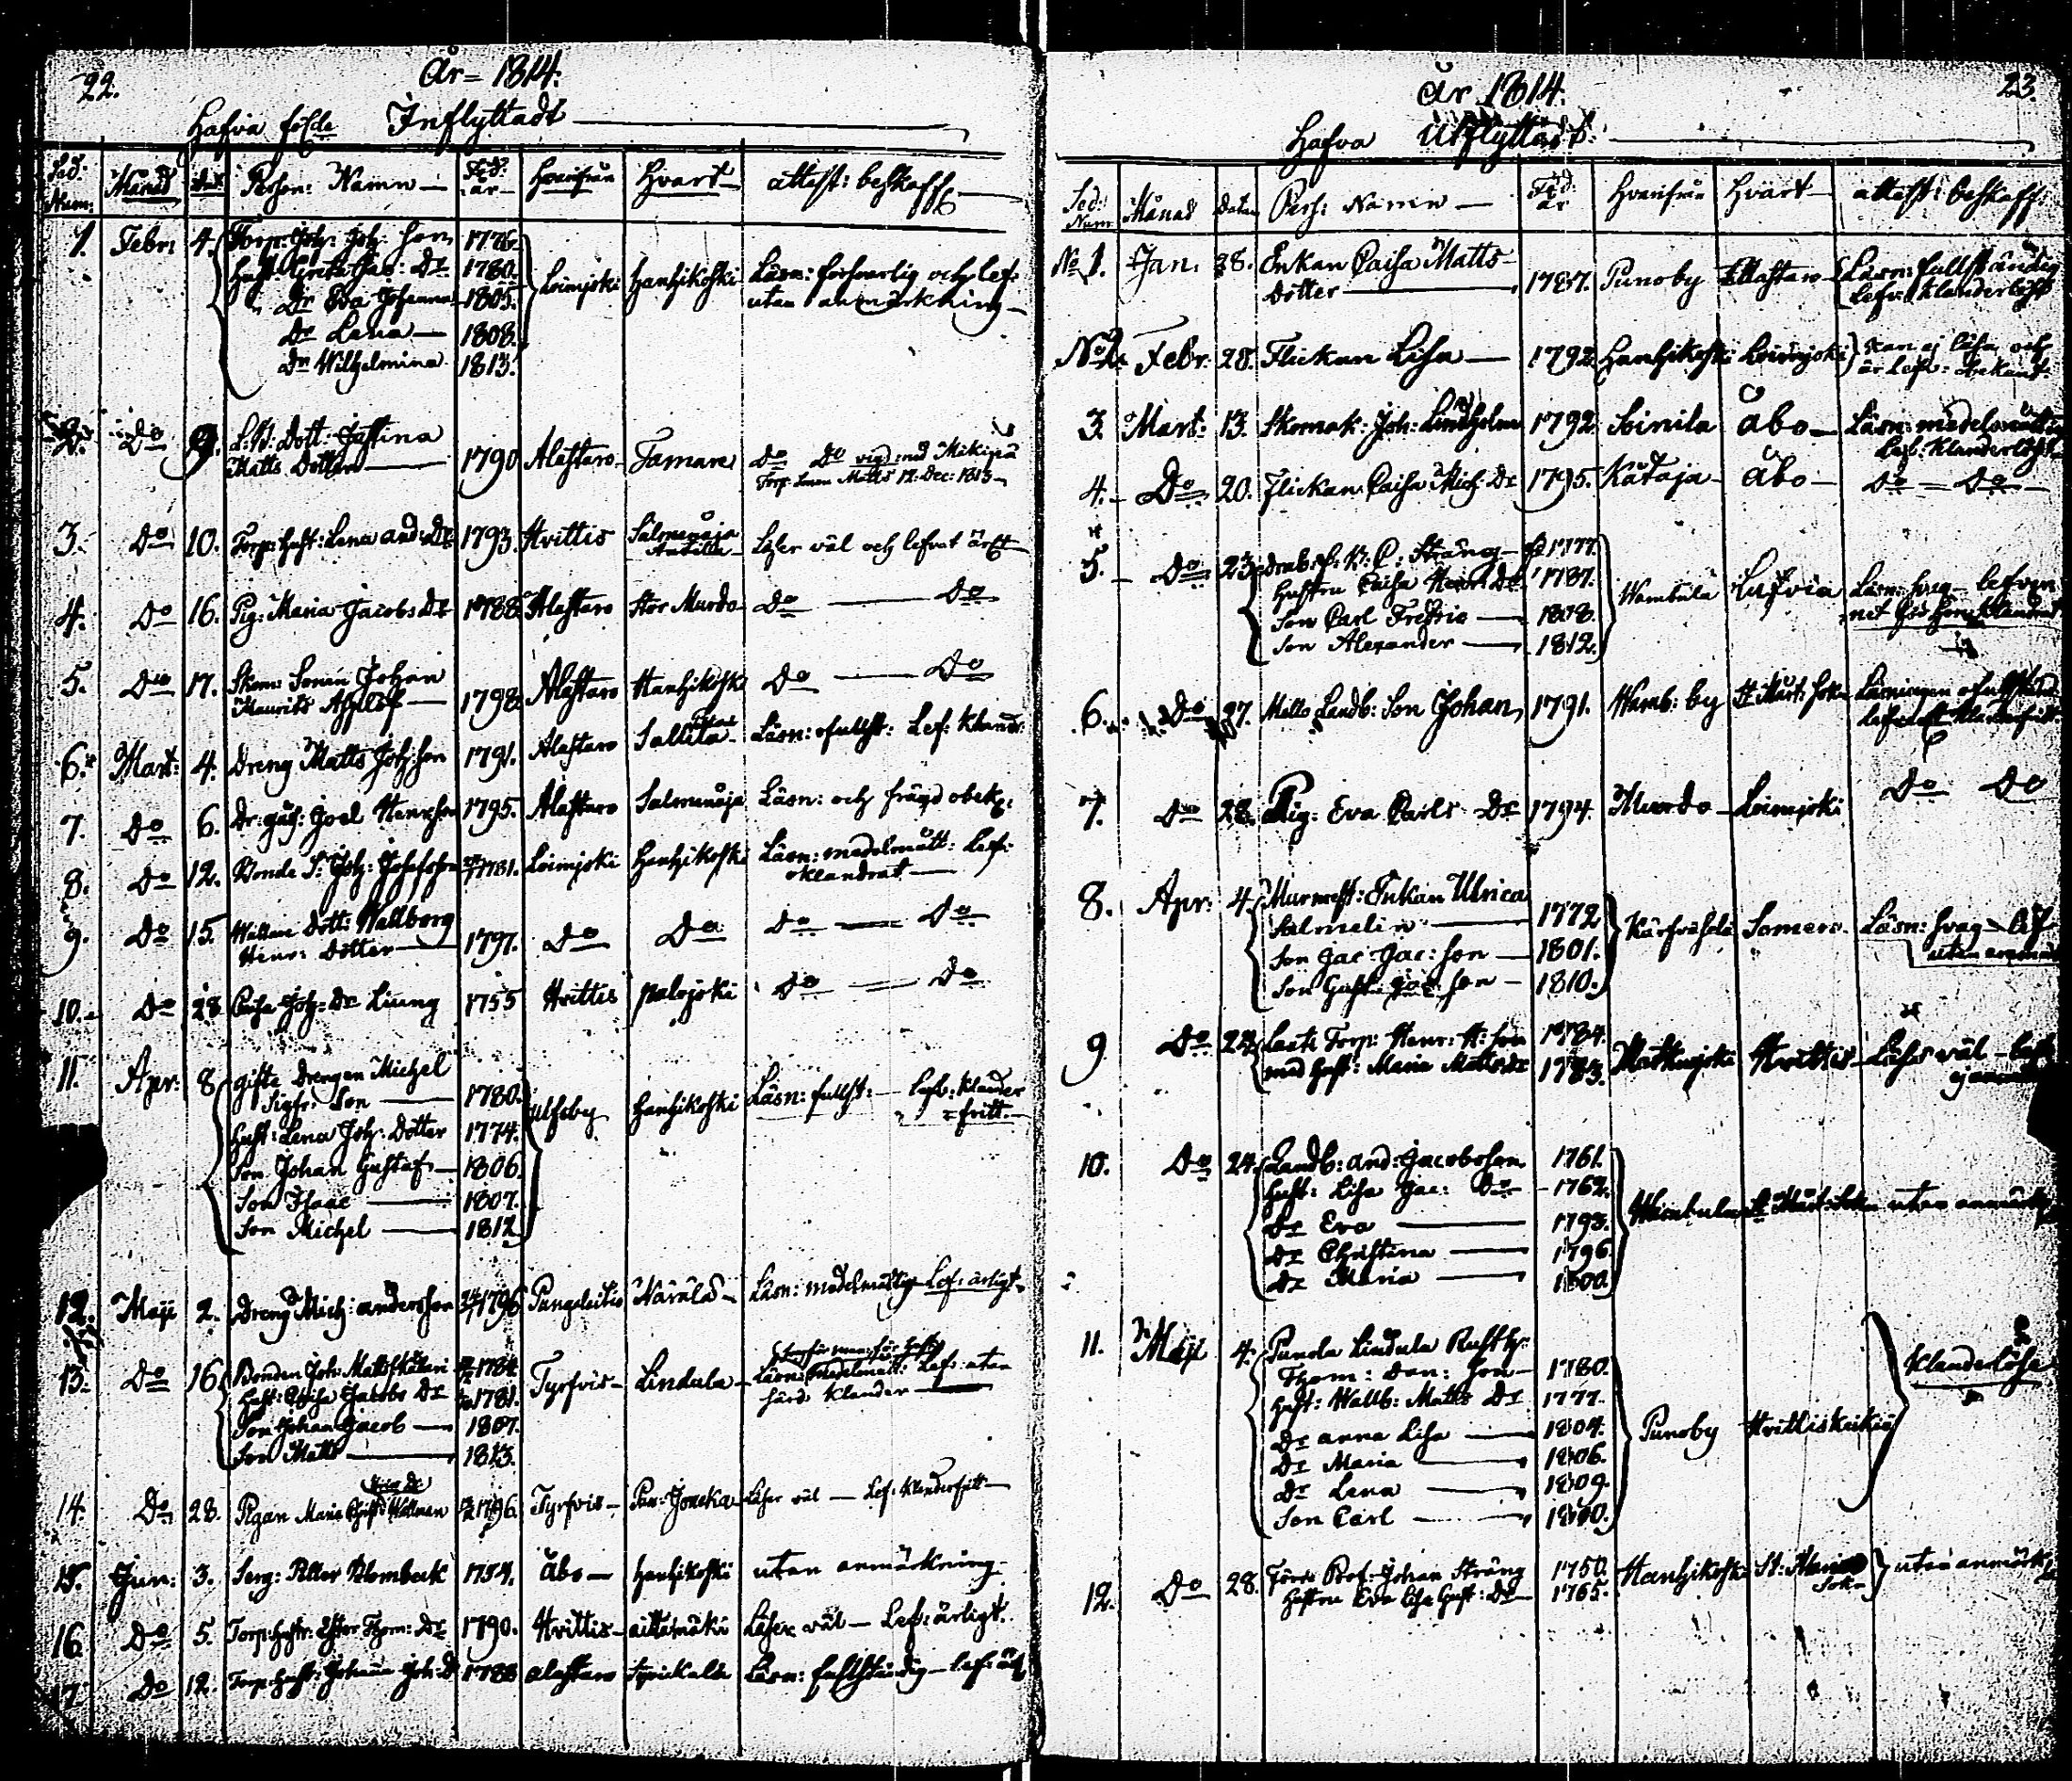 22.
År 1814.
Hafva följde Inflyttadt
Sed: Num: Månad dat: Person: Namn Föd: år Hvarifrån Hvart attest: beskaff:
1. Febr: 4. Torp: Joh: Joh: son 1776.
Hust: Greta Jac: Dr 1780. Loimjoki Hanhikoski Läsn: försvarlig och lef:
Dr Eva Johanna 1805. utan anmärkning
Dr Lena 1808.
Dr Wilhelmina 1813.
2. Do Dott: Justina
Matts Dotter 1790 Alastaro Tamare Do Do vigd med
Matts 12. Dec: 1813
3. Do 10. Torp: Hust: Lena And: Dr 1793. Hvittis Läser väl och lefvat
4. Do 16. Pig: Maria Jacobs Dr 1788. Alastaro Stor Murdo Do Do
5. Do 17. Skom: Sonen Johan
Maurits 1798. Alastaro Hanhikoski Do Do
6. Mart: 4. Dreng Matts Joh: son 1791. Alastaro Sallila Läsn: ofullst: Lef: Kland:
7. Do 6. Joel Henr:son 1795. Alastaro Salmenoja Läsn: och frägd obek:
8. Do 12. Bonde S: Joh: Josefsson 1781. Loimjoki Hanhikoski Läsn: medelmått: Lef:
oklandrat
9. Do 15. Dott: Wallborg
Henr: Dotter 1797. Do Do Do Do
10. Do 28. Caisa Joh: Dr Liung 1755 Hvittis Palojoki Do Do
11. Apr: 8 gifte Drengen Michel
Sigfr: Son 1780. Ulfsby Hanhikoski Läsn: fullst: Lefv: Klander
fritt
Hust: Lena Joh: Dotter 1774.
Son Johan Gustaf 1806.
Son Isaac 1807.
Son Michel 1812
12. Maji 2. Dreng Mich: Andersson 1796 Pungalaitio Wärälä Läsn: medelmåttig Lef: ärligt
13. Do 16 Bonden Joh: 1784 Tyrfvis Lindula Läsn: medelmått: Lef: utan
Hust: Caisa Jacobs Dr 1781. Klander
Son Johan Jacob 1807.
Son Matts 1813.
14. Do 28. Pigan Maria 1796. Tyrfvis Läser väl Lef: Klanderfritt
15. Jun: 3. Serg: Petter Blombeck 1754. Åbo Hanhikoski utan anmärkning
16. Do 5. Torp: Hustr: Ester Thom: Dr 1790. Hvittis Aittamäki Läser väl Lef: ärligt.
17. Do 12. Torp: Hust: Johanna Joh: D 1788 Alastaro Läsn: fullständig lef:
23.
År 1814.
Hafva Utflyttadt
Sed: Num Månad Datum Pers: Namn Föd: år Hvarifrån Hvart attest: beskaff:
No 1. Jan. 28. Enkan Caisa Matts
Dotter 1787. Punoby Alastaro Läsn: fullständig
Lefv: Klanderlöst
No 2. Febr. 28. Flickan Lisa 1792 Hanhikoski Loimjoki kan ej läsa och
är lef: obekant
3. Mart: 13. Skomak: Joh: Lindholm 1792. Soinila Åbo Läsn: medelmåttig
Lef: Klanderlöst
4. Do 20. Flickan Caisa Mich: Dr 1795. Kataja Åbo Do Do
5. Do 23. Sträng 1777.
Hustru Caisa Henr: Dr 1787. Wambula Läsn: svag
Son Carl Fredric 1808.
Son Alexander 1812.
6. Do 27. Mello Landb: Son Johan 1791. Wamb: by St Mårt: Sokn Läsningen ofullständ:
Klanderfritt
7. Do 28. Pig: Eva Carls Dr 1794. Murdo Loimjoki Do Do
8. Apr: 4. Murmest: Enkan Ulrica
Salmelin 1772 Somero Läsn: svag lef
Son Jac: Jac: son 1801. utan anmärk
Son Gust: Jac: son 1810.
9 Do 22. Torp: Henr: H: son 1784. Matkujoki Hvittis Läser väl
med Hust: Maria Matts Dr 1783.
10. Do 24. Landb: And: Jacobsson 1761.
Hust: Lisa Jac: Dr 1762. Wambula St Mårt: Sokn utan anmärk
Dr Eva 1793.
Dr Christina 1796
Dr Maria 1800.
11. Maji 4. Punola Lindula Rusth:
Thom: Dan: son 1780. Klanderlösa
Hust: Wallb: Matts Dr 1777. Punoby Hvittis
Dr Anna Lisa 1804.
Dr Maria 1806.
Dr Lena 1809.
Son Carl 1810.
12. Do 28. Johan Sträng 1750. Hanhikoski St: Sokn utan anmärk
Hustru Eva Lisa Gust: Dr 1765.